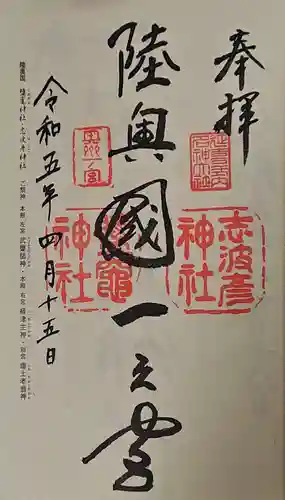 奉拝
陸奥國一之宮
令和五年四月十五日
志波彦
神社
鹽竈
神社
奥州一ノ宮
陸奥国 鹽竈神社・志波彦神社 ご祭神 本殿 左宮 武甕槌神・本殿 右宮 経津主神・別宮 鹽土老翁神